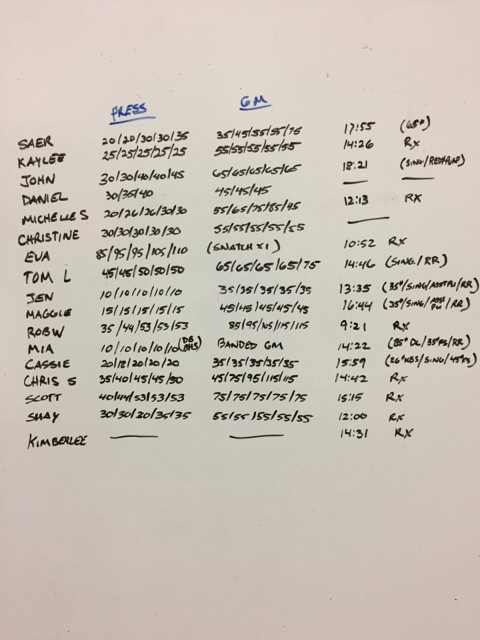 PRESS GM
SAER 20/20/30/30/35 35/45/55/55/75 17:55 (65#)
KAYLEE 25/25/25/25/25 55/55/55/55/55 14:26 RX
JOHN 30/30/40/40/45 65/65/65/65/65 18:21 (SING/
DANIEL 30/35/40 45/45/45 — —
MICHELLE S 20/26/26/30/30 55/65/75/85/95 12:13 RX
CHRISTINE 30/30/30/30/30 55/55/55/55/55 —
EVA 85/95/95/105/110 (SNATCH X1) 10:52 RX
TOM L 45/45/50/50/50 65/65/65/65/75 14:46 (SING/RR)
JEN 10/10/10/10/10 35/35/35/35/35 13:35 (35#/SING/ASST PU/RR)
MAGGIE 15/15/15/15/15 45/45/45/45/45 16:44 (35#/SING/ASST PU/RR)
ROB W 35/44/53/53/53 85/95/115/115/115 9:21 RX
MIA 10/10/10/10/10 (DB BANDED GM 14:22 (85# DL/35#PS/RR)
CASSIE 20/18/20/20/20 35/35/35/35/35 15:59 (26#KBS/SING/45#PS)
CHRIS S 35/40/45/45/30 45/75/95/115/115 14:42 RX
SCOTT 40/44/53/53/53 75/75/75/75/75 15:15 RX
SHAY 30/30/20/35/35 55/55/55/55/55 12:00 RX
KIMBERLEE — — 14:31 RX